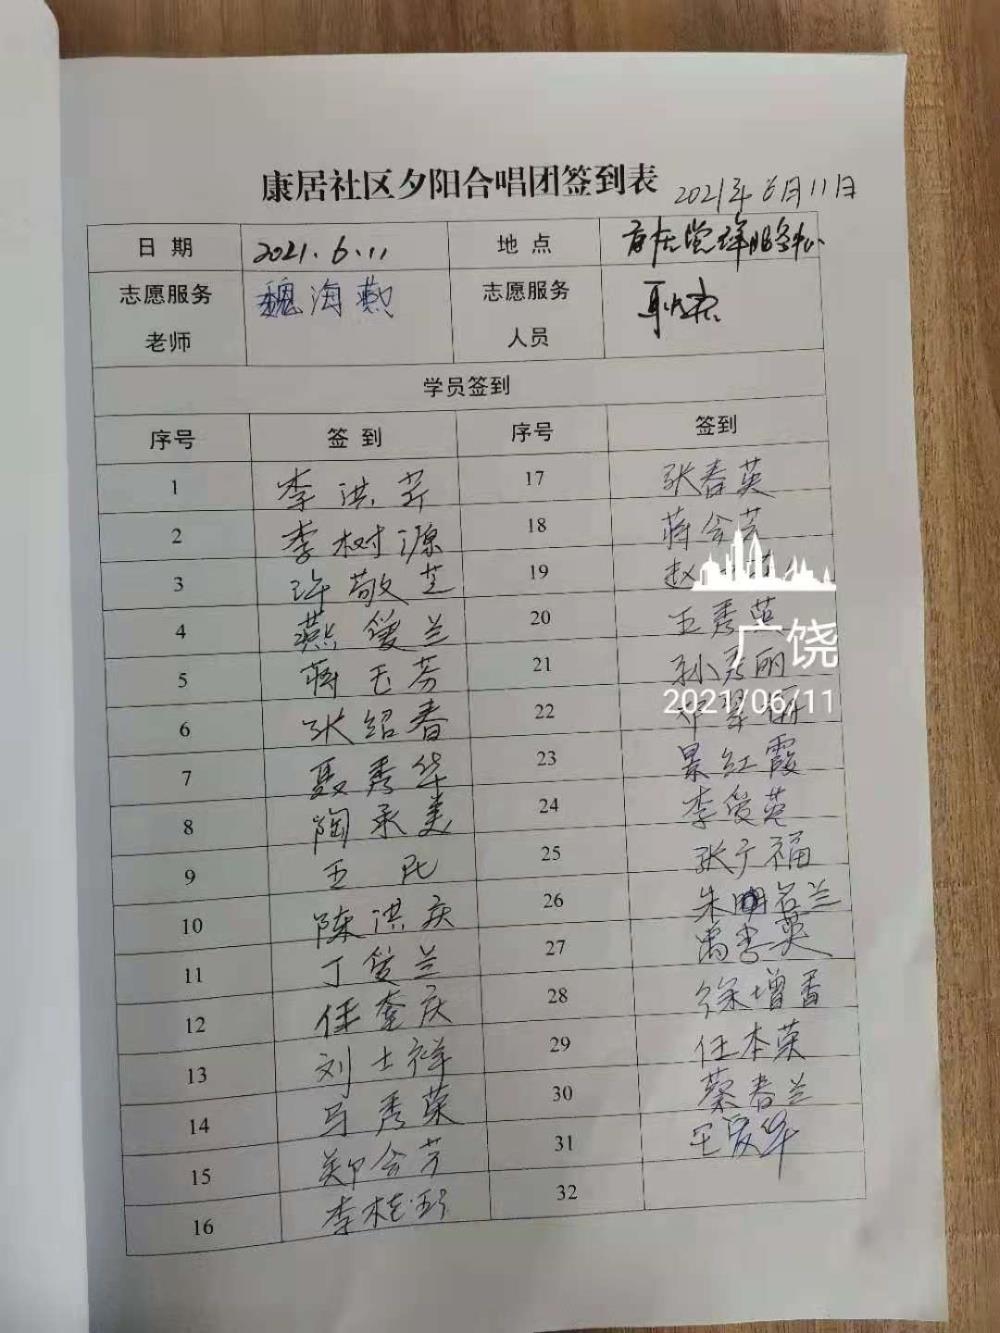 康居社区夕阳合唱团签到表 2021年6月11日
日期 2021.6.11 地点 服务中心
志愿服务老师 魏海燕 志愿服务人员
学员签到
序号 签到 序号 签到
1 李洪芹 17 张春英
2 李树源 18 蒋会芳
3 许敬芝 19 赵
4 燕爱兰 20 王秀英
5 蒋玉芬 21 孙秀丽
6 张绍春 22
7 聂秀华 23 景红霞
8 陶承美 24 李爱英
9 王民 25 张广福
10 陈洪庆 26 朱明兰
11 丁爱兰 27 英
12 任奎庆 28 徐增香
13 刘士祥 29 任本荣
14 马秀荣 30 蔡春兰
15 郑会芳 31 王爱华
16 李桂 32
广饶
2021/06/11